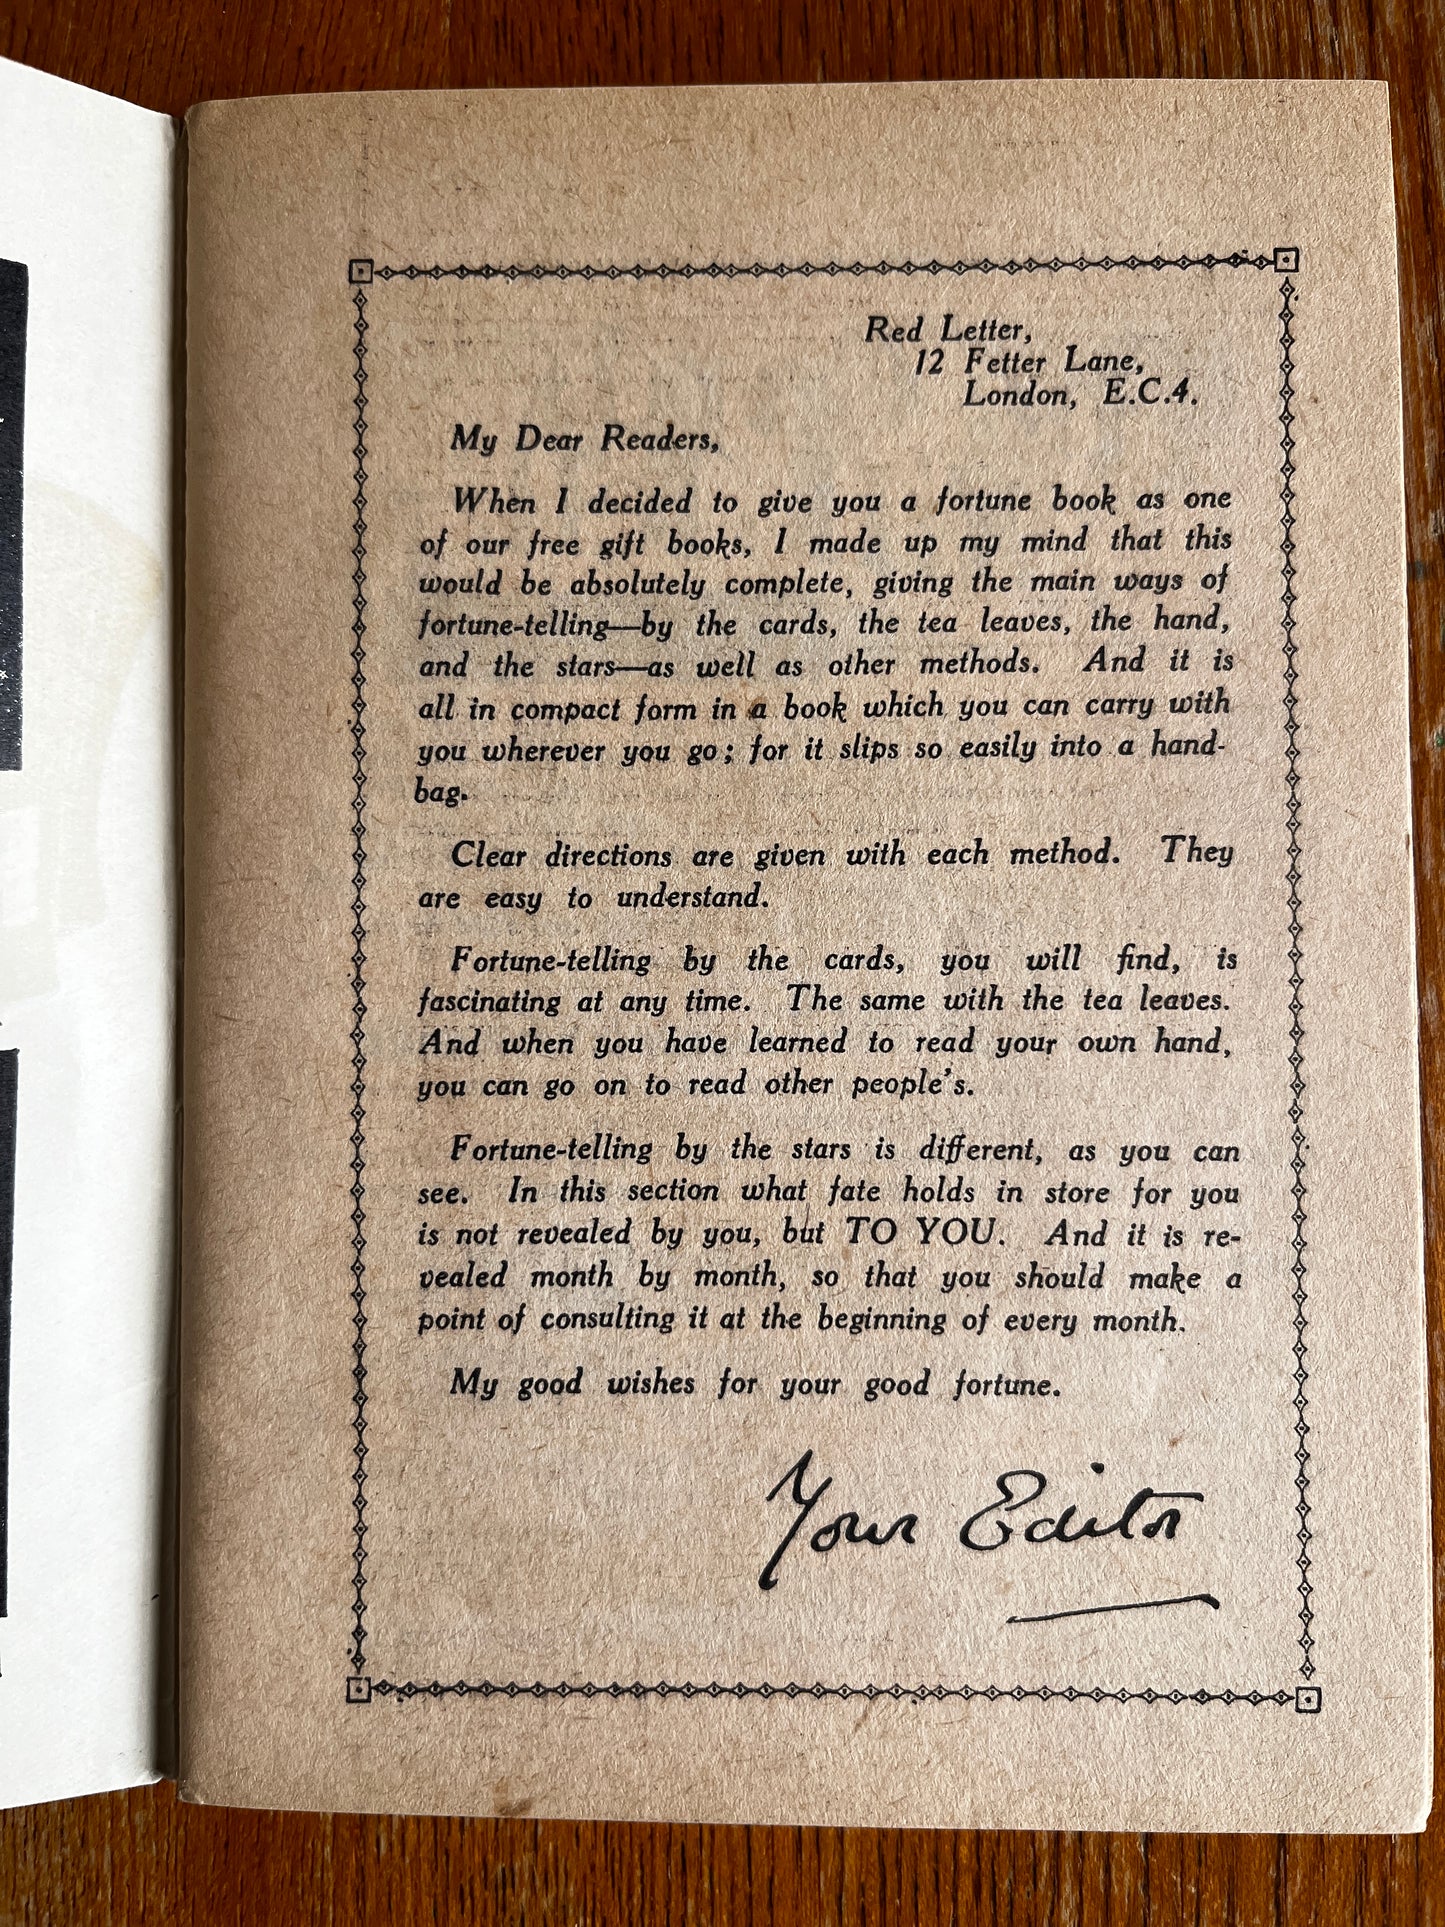 Red Letter,
12 Fetter Lane,
London, E.C.4.
My Dear Readers,
When I decided to give you a fortune book as one
of our free gift books, I made up my mind that this
would be absolutely complete, giving the main ways of
fortune-telling—by the cards, the tea leaves, the hand,
and the stars—as well as other methods. And it is
all in compact form in a book which you can carry with
you wherever you go; for it slips so easily into a hand-
bag.
Clear directions are given with each method. They
are easy to understand.
Fortune-telling by the cards, you will find, is
fascinating at any time. The same with the tea leaves.
And when you have learned to read your own hand,
you can go on to read other people's.
Fortune-telling by the stars is different, as you can
see. In this section what fate holds in store for you
is not revealed by you, but TO YOU. And it is re-
vealed month by month, so that you should make a
point of consulting it at the beginning of every month.
My good wishes for your good fortune.
Your Editor